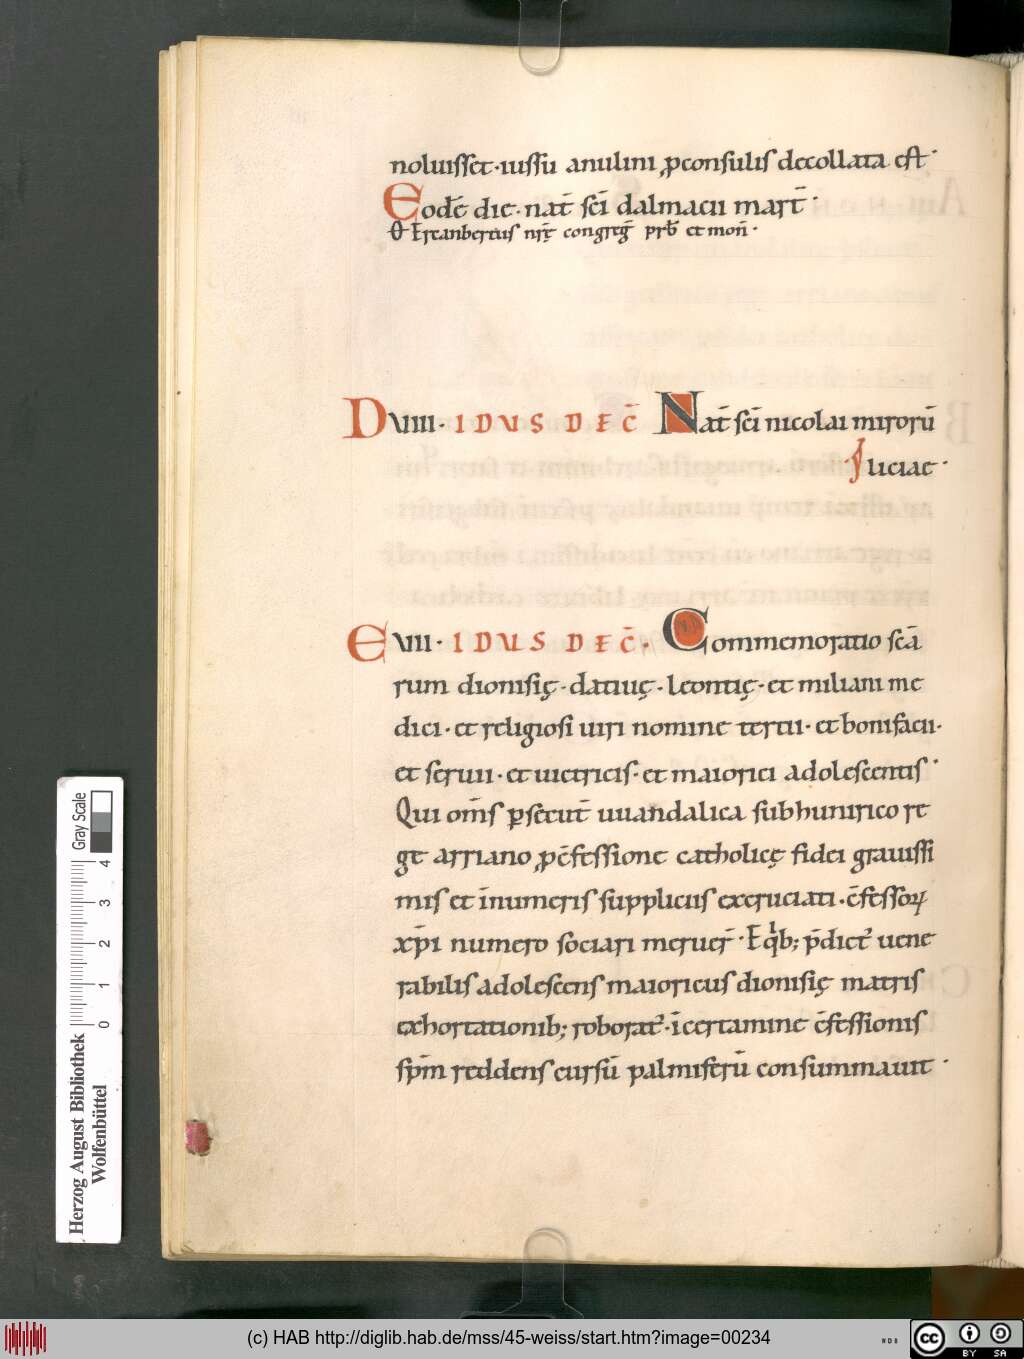 noluisset · iussu anulini ꝓconsulis decollata est ·
Eodē die · nat̄ sc̄i dalmacii mart̄ ·
Ercanbertus nr̄ę congreḡ prb̄ et mon̄ ·
D VIIII · IDUS DEC̄ Nat̄ sc̄i nicolai mirorū
liciae ·
E VIII · IDUS DEC̄ · Commemoratio scā
rum dionisię · datiuę · leontię · et miliani me
dici · et religiosi uiri nomine tertii · et bonifacii ·
et seruii · et uictricis · et maiorici adolescentis ·
Qui om̄s ꝑsecut̄ uuandalica sub hunirico re
ge arriano ꝓ c̄fessione catholicę fidei grauissi
mis et īnumeris suppliciis excruciati · c̄fessoꝝ
xp̄i numero sociari meruer̄ · E qⁱb; p̄dict᷒ uene
rabilis adolescens maioricus dionisię matris
exhortationib; roborat᷒ · ī certamine c̄fessionis
sp̄m reddens cursū palmiferū consummauit ·
Herzog August Bibliothek
Wolfenbüttel
Gray Scale
0 1 2 3 4
(c) HAB http://diglib.hab.de/mss/45-weiss/start.htm?image=00234
WDB
cc
BY SA